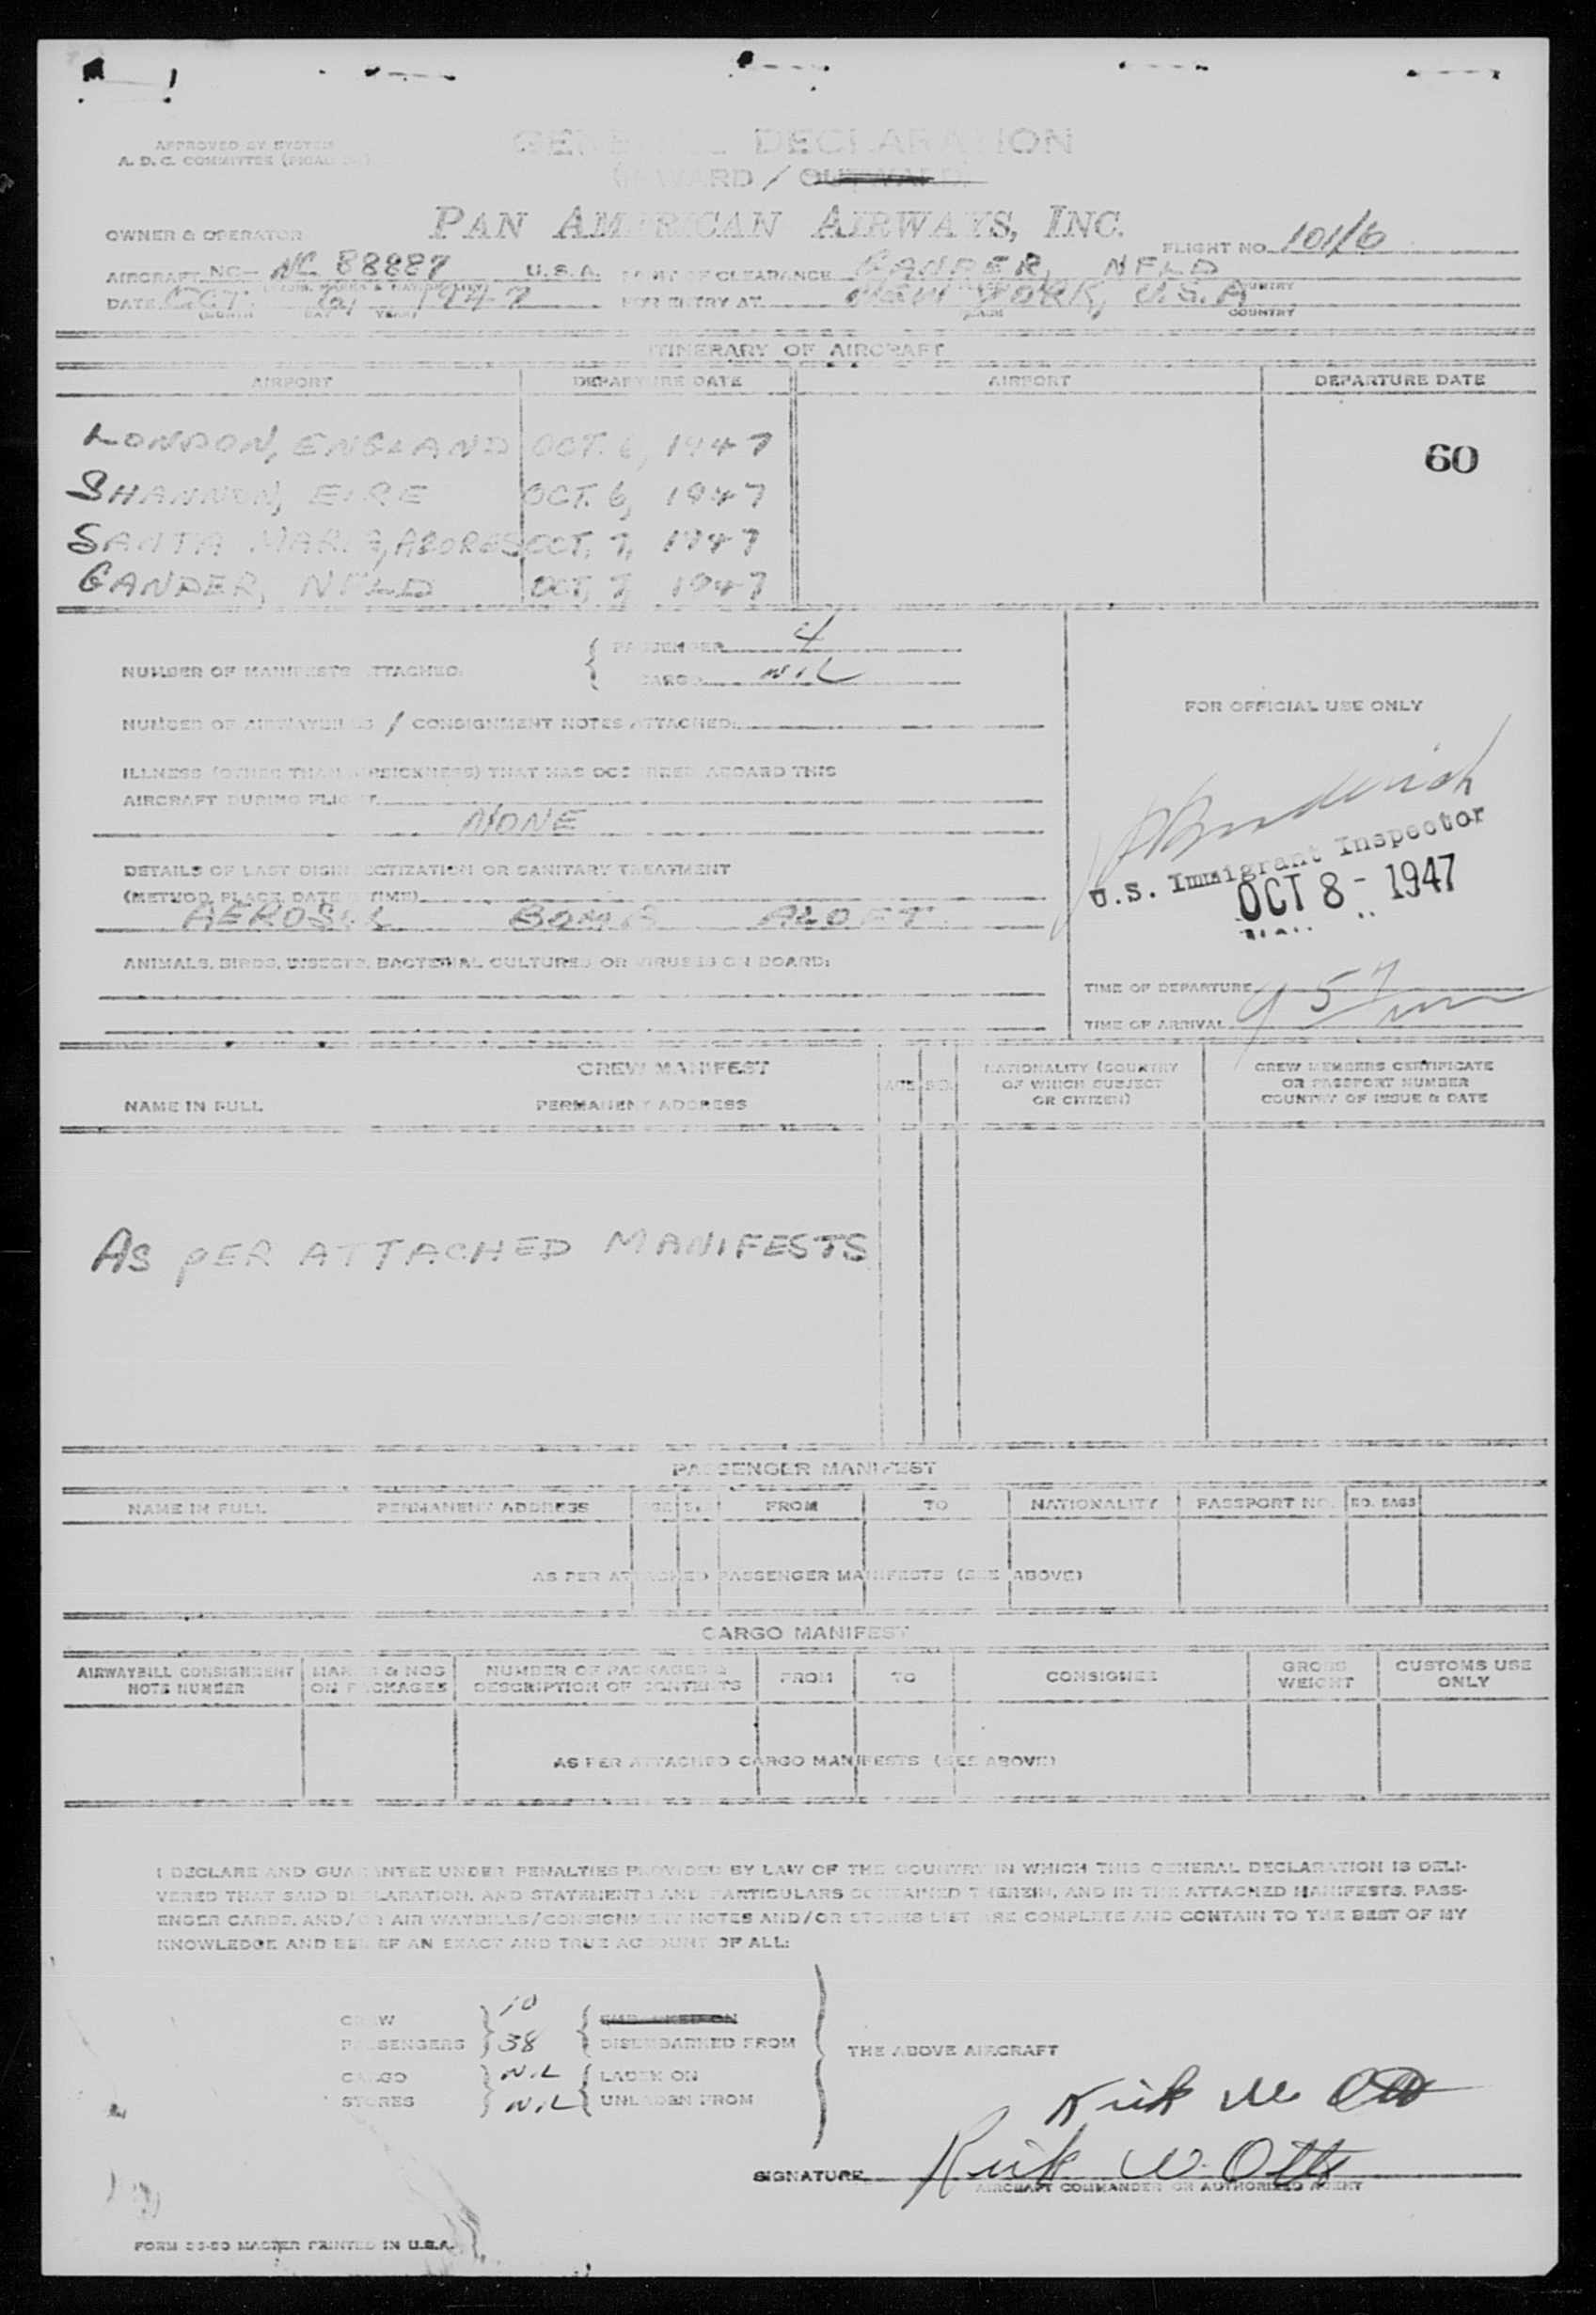 APPROVED BY SYSTEM
A. D. C. COMMITTEE
GENERAL DECLARATION
(INWARD / OUTWARD)
PAN AMERICAN AIRWAYS, INC.
OWNER & OPERATOR
FLIGHT NO. 101/6
AIRCRAFT NC- NC 88887 U.S.A. POINT OF CLEARANCE GANDER, NFLD
COUNTRY
DATE OCT. 6, 1947 FOR ENTRY AT NEW YORK, U.S.A
(MONTH DAY YEAR) PLACE COUNTRY
ITINERARY OF AIRCRAFT
AIRPORT DEPARTURE DATE AIRPORT DEPARTURE DATE
LONDON, ENGLAND OCT. 6, 1947
60
SHANNON, EIRE OCT. 6, 1947
SANTA MARIA, AZORES OCT. 7, 1947
GANDER, NFLD OCT, 7, 1947
PASSENGER 4
NUMBER OF MANIFESTS ATTACHED:
CARGO NIL
NUMBER OF AIRWAYBILLS / CONSIGNMENT NOTES ATTACHED:
FOR OFFICIAL USE ONLY
ILLNESS (OTHER THAN AIRSICKNESS) THAT HAS OCCURRED ABOARD THIS
AIRCRAFT DURING FLIGHT
NONE
U.S. Immigrant Inspector
OCT 8 - 1947
DETAILS OF LAST DISINSECTIZATION OR SANITARY TREATMENT
(METHOD, PLACE, DATE & TIME)
AEROSOL BOMB ALOFT
ANIMALS, BIRDS, INSECTS, BACTERIAL CULTURES OR VIRUSES ON BOARD:
TIME OF DEPARTURE
TIME OF ARRIVAL 957
CREW MANIFEST
NAME IN FULL PERMANENT ADDRESS AGE SEX NATIONALITY (COUNTRY OF WHICH SUBJECT OR CITIZEN) CREW MEMBERS CERTIFICATE OR PASSPORT NUMBER COUNTRY OF ISSUE & DATE
AS PER ATTACHED MANIFESTS
PASSENGER MANIFEST
NAME IN FULL PERMANENT ADDRESS AGE SEX FROM TO NATIONALITY PASSPORT NO. NO. BAGS
AS PER ATTACHED PASSENGER MANIFESTS (SEE ABOVE)
CARGO MANIFEST
AIRWAYBILL CONSIGNMENT NOTE NUMBER MARKS & NOS ON PACKAGES NUMBER OF PACKAGES & DESCRIPTION OF CONTENTS FROM TO CONSIGNEE GROSS WEIGHT CUSTOMS USE ONLY
AS PER ATTACHED CARGO MANIFESTS (SEE ABOVE)
I DECLARE AND GUARANTEE UNDER PENALTIES PROVIDED BY LAW OF THE COUNTRY IN WHICH THIS GENERAL DECLARATION IS DELI-
VERED THAT SAID DECLARATION, AND STATEMENTS AND PARTICULARS CONTAINED THEREIN, AND IN THE ATTACHED MANIFESTS, PASS-
ENGER CARDS, AND/OR AIR WAYBILLS/CONSIGNMENT NOTES AND/OR STORES LIST ARE COMPLETE AND CONTAIN TO THE BEST OF MY
KNOWLEDGE AND BELIEF AN EXACT AND TRUE ACCOUNT OF ALL:
CREW 10 EMBARKED ON
PASSENGERS 38 DISEMBARKED FROM
THE ABOVE AIRCRAFT
CARGO NIL LADEN ON
STORES NIL UNLADEN FROM
SIGNATURE
AIRCRAFT COMMANDER OR AUTHORIZED AGENT
FORM MASTER PRINTED IN U.S.A.